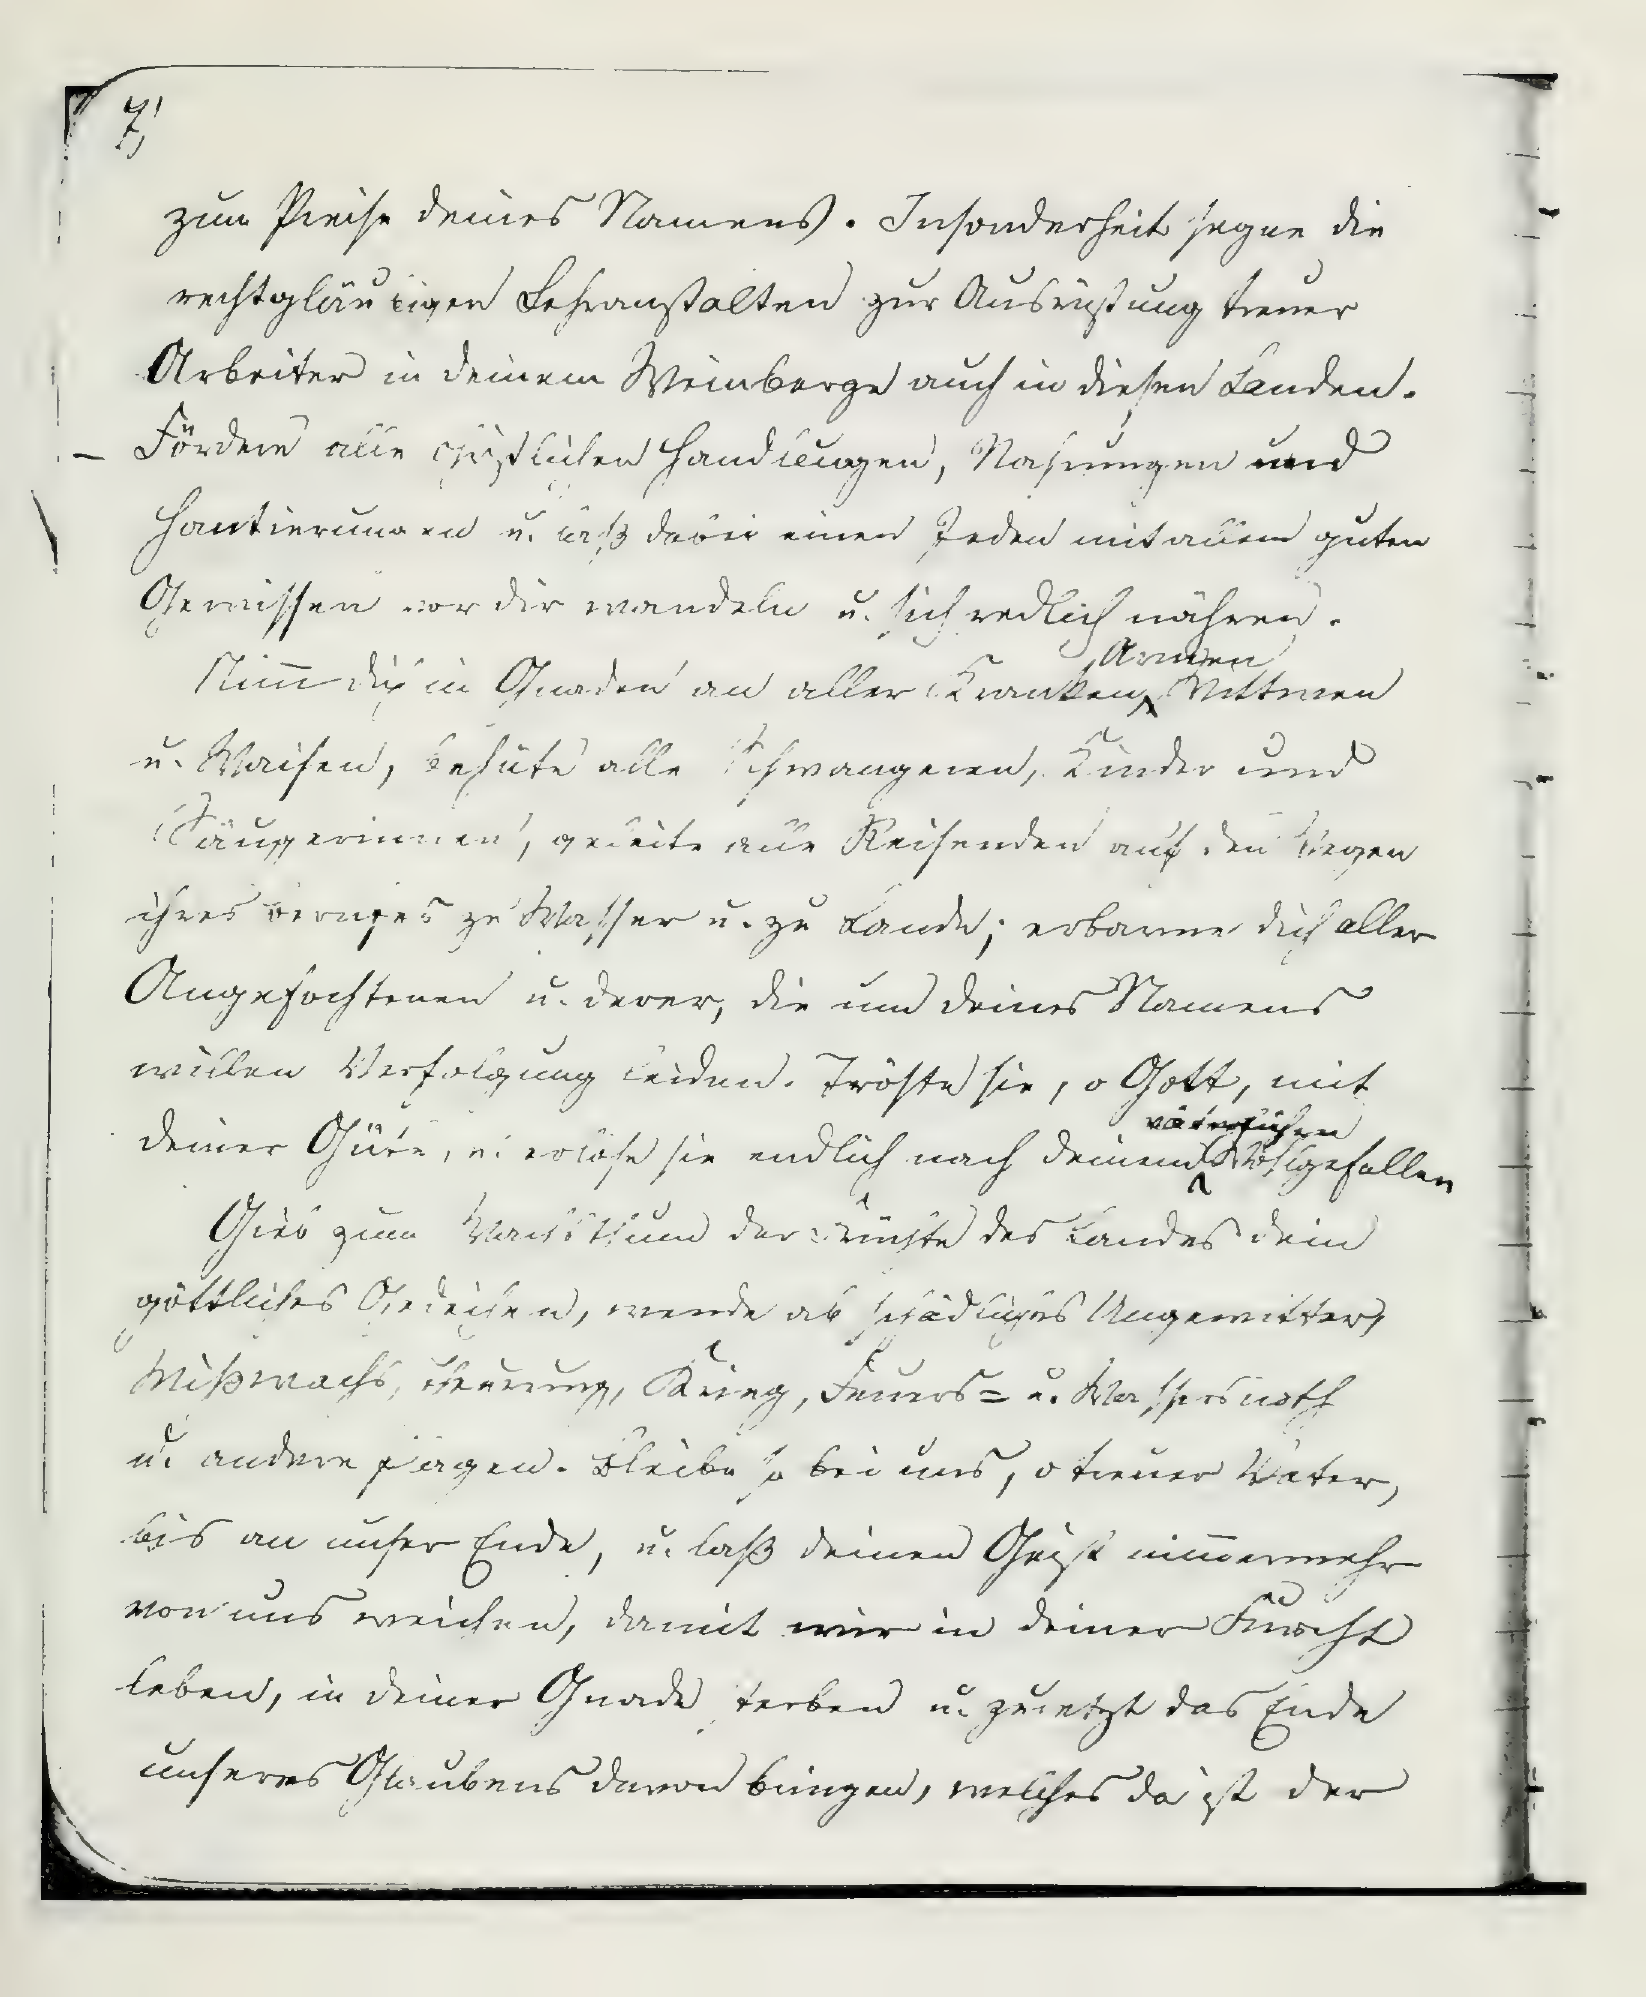 7,
zum Preise deines Namens. Insonderheit segne die
rechtgläubigen Lehranstalten zur Ausrüstung treuer
Arbeiter in deinem Weinberge auch in diesen Landen.
– Fördere alle christlichen Handlungen, Nahrungen und
Hantierungen u. laß dabei einen Jeden mit allem guten
Gewissen vor dir wandeln u. sich redlich nähren.
, Armen
Nim̅ dich in Gnaden an aller Kranken, Wittwen
u. Waisen, behüte alle Schwangeren, Kinder und
Säugerinnen, geleite alle Reisenden auf den Wegen
ihres Berufes zu Wasser u. zu Lande; erbarme dich aller
Angefochtenen u. derer, die um deines Namens
willen Verfolgung leiden. Tröste sie, o Gott, mit
väterlichen
deiner Güte, u. erlöse sie endlich nach deinem Wohlgefallen
Gieb zum Wachsthum der Früchte des Landes dein
göttliches Gedeihen, wende ab schädliches Ungewitter,
Mißwachs, Theurung, Krieg, Feuers= u. Wassersnoth
u. andere Plagen. Bleibe so bei uns, o treuer Vater,
bis an unser Ende, u. laß deinen Geist nim̅ermehr
von uns weichen, damit wir in deiner Furcht
leben, in deiner Gnade sterben u. zuletzt das Ende
unseres Glaubens davon bringen, welches da ist der